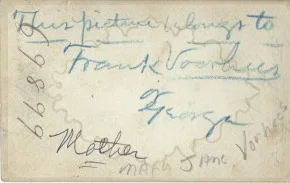 This picture belongs to
Frank Voorhies
George
Mother
MARY JANE VORHEES
66869